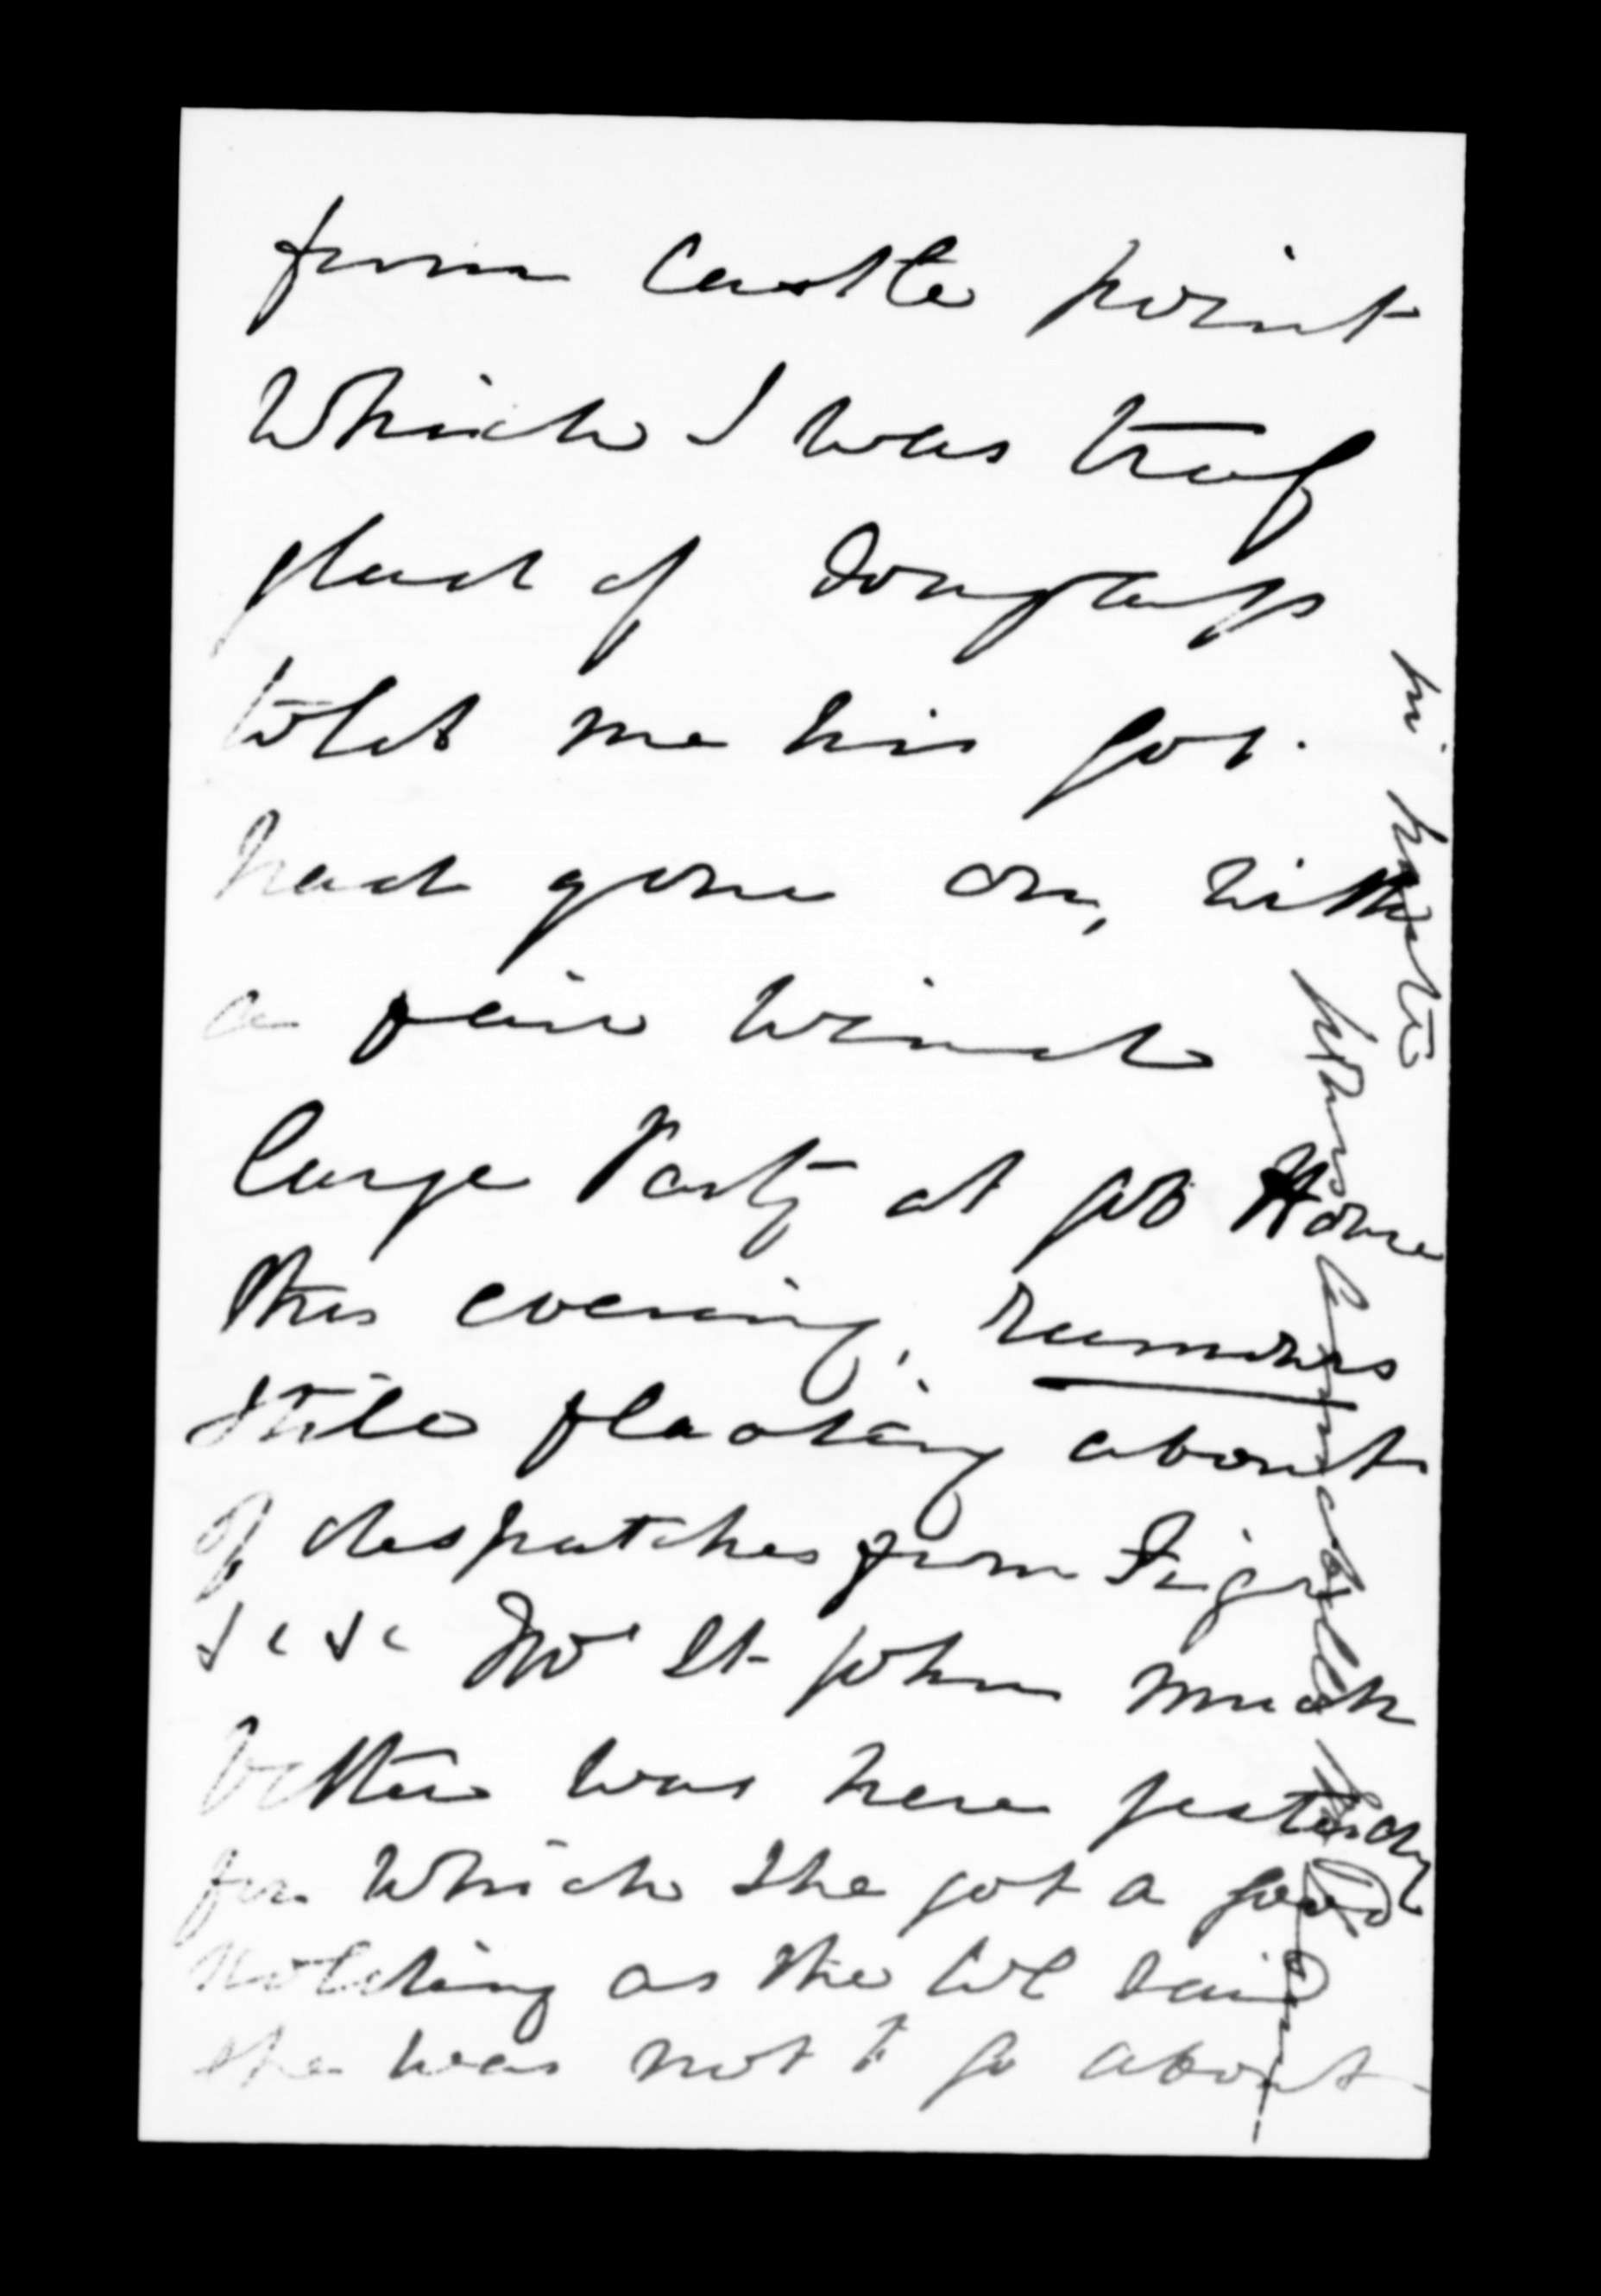 from Castle point
which I was truly
glad of Douglass
told me his gov.
had gone on, with
a fair wind
large Party at Gov House
this evening, rumours
still floating about
of despatches from Figi
&c &c Mrs St John much
better was here yesterday
for which she got a good
as the Col said
she was not to go about
in haste
yours